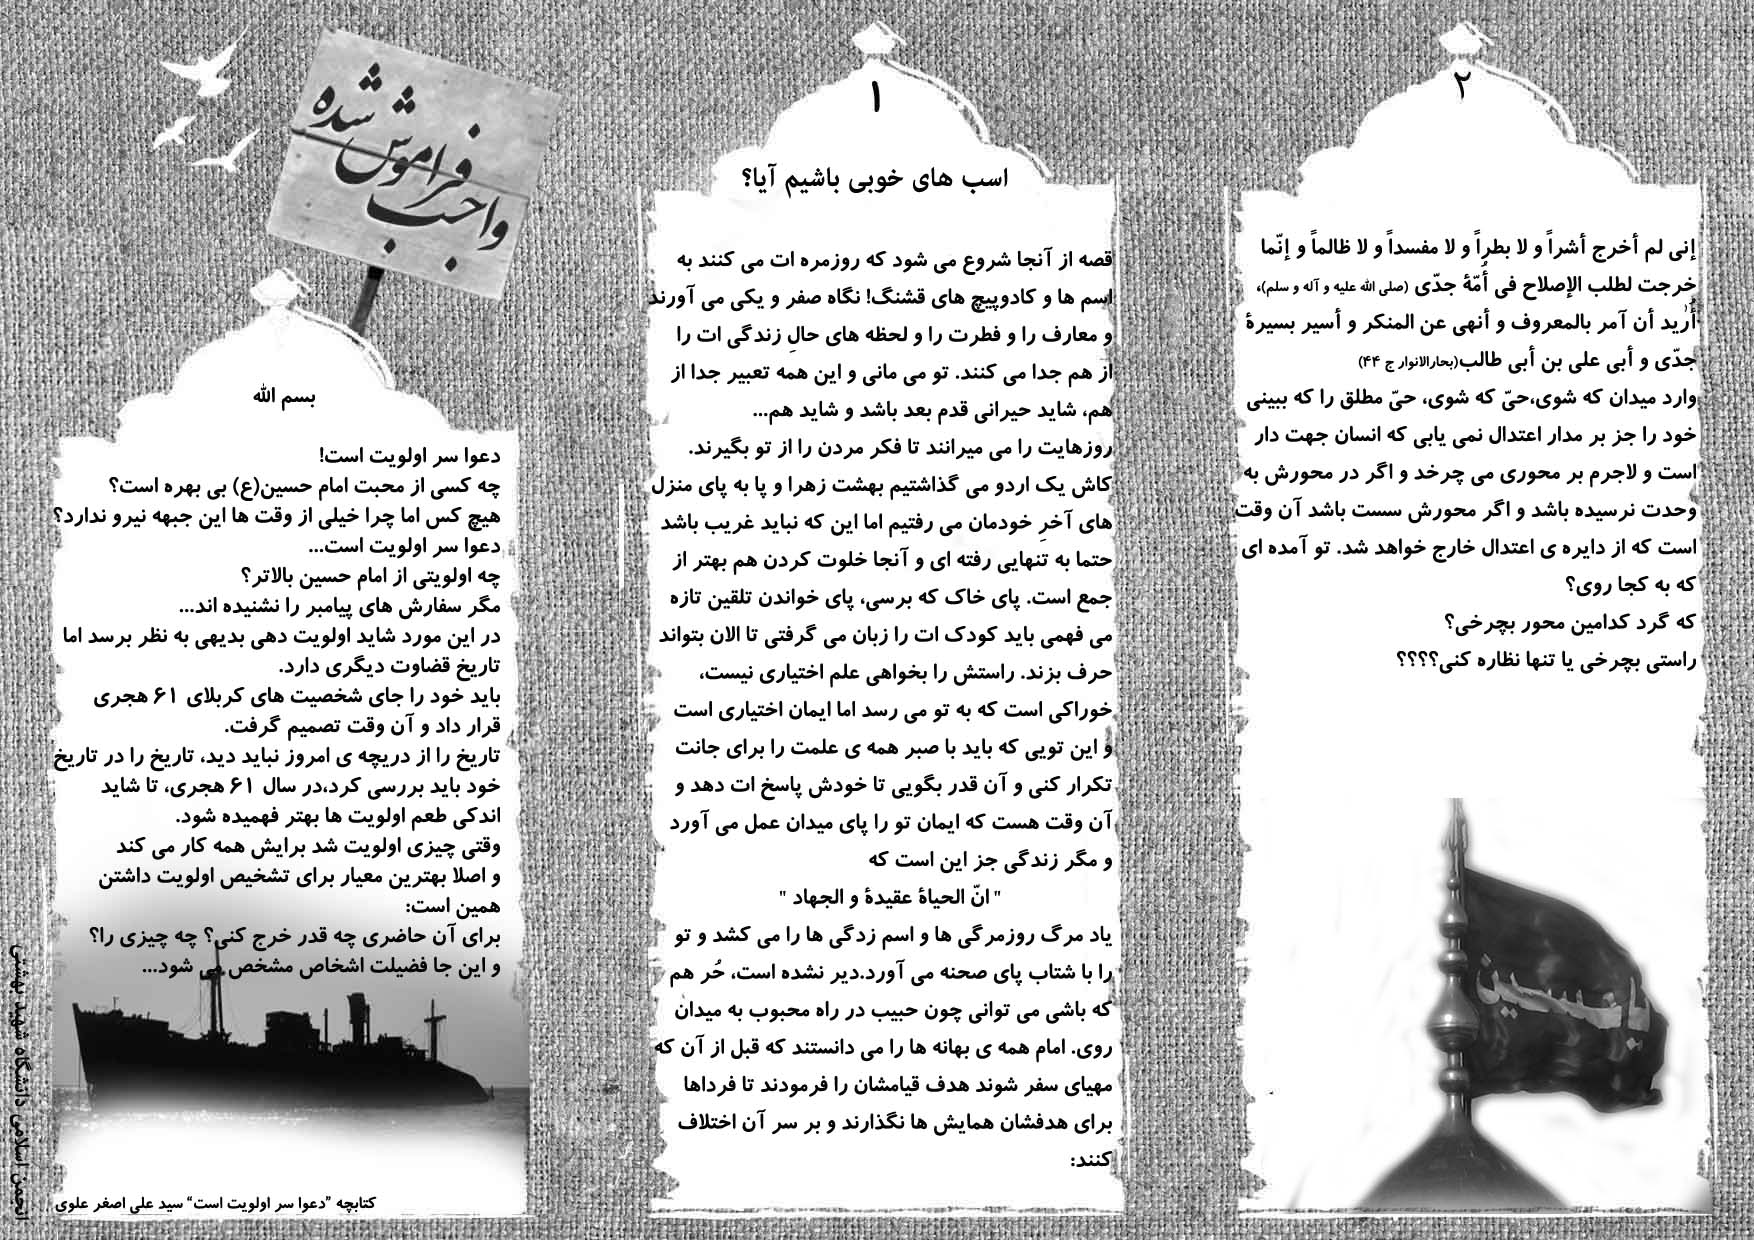 واجب فراموش شده
بسم الله
دعوا سر اولویت است!
چه کسی از محبت امام حسین(ع) بی بهره است؟
هیچ کس اما چرا خیلی از وقت ها این جبهه نیرو ندارد؟
دعوا سر اولویت است...
چه اولویتی از امام حسین بالاتر؟
مگر سفارش های پیامبر را نشنیده اند...
در این مورد شاید اولویت دهی بدیهی به نظر برسد اما
تاریخ قضاوت دیگری دارد.
باید خود را جای شخصیت های کربلای ۶۱ هجری
قرار داد و آن وقت تصمیم گرفت.
تاریخ را از دریچه ی امروز نباید دید، تاریخ را در تاریخ
خود باید بررسی کرد،در سال ۶۱ هجری، تا شاید
اندکی طعم اولویت ها بهتر فهمیده شود.
وقتی چیزی اولویت شد برایش همه کار می کند
و اصلا بهترین معیار برای تشخیص اولویت داشتن
همین است:
برای آن حاضری چه قدر خرج کنی؟ چه چیزی را؟
و این جا فضیلت اشخاص مشخص می شود...
کتابچه "دعوا سر اولویت است" سید علی اصغر علوی
انجمن اسلامی دانشگاه شهید بهشتی
۱
اسب های خوبی باشیم آیا؟
قصه از آنجا شروع می شود که روزمره ات می کنند به
اسم ها و کادوپیچ های قشنگ! نگاه صفر و یکی می آورند
و معارف را و فطرت را و لحظه های حالِ زندگی ات را
از هم جدا می کنند. تو می مانی و این همه تعبیر جدا از
هم، شاید حیرانی قدم بعد باشد و شاید هم...
روزهایت را می میرانند تا فکر مردن را از تو بگیرند.
کاش یک اردو می گذاشتیم بهشت زهرا و پا به پای منزل
های آخرِ خودمان می رفتیم اما این که نباید غریب باشد
حتما به تنهایی رفته ای و آنجا خلوت کردن هم بهتر از
جمع است. پای خاک که برسی، پای خواندن تلقین تازه
می فهمی باید کودک ات را زبان می گرفتی تا الان بتواند
حرف بزند. راستش را بخواهی علم اختیاری نیست،
خوراکی است که به تو می رسد اما ایمان اختیاری است
و این تویی که باید با صبر همه ی علمت را برای جانت
تکرار کنی و آن قدر بگویی تا خودش پاسخ ات دهد و
آن وقت هست که ایمان تو را پای میدان عمل می آورد
و مگر زندگی جز این است که
" انّ الحیاة عقیدة و الجهاد "
یاد مرگ روزمرگی ها و اسم زدگی ها را می کشد و تو
را با شتاب پای صحنه می آورد.دیر نشده است، حُر هم
که باشی می توانی چون حبیب در راه محبوب به میدان
روی. امام همه ی بهانه ها را می دانستند که قبل از آن که
مهیای سفر شوند هدف قیامشان را فرمودند تا فرداها
برای هدفشان همایش ها نگذارند و بر سر آن اختلاف
کنند:
۲
إنی لم أخرج أشراً و لا بطراً و لا مفسداً و لا ظالماً و إنّما
خرجت لطلب الإصلاح فی أُمّة جدّی (صلی الله علیه و آله و سلم)،
أُرید أن آمر بالمعروف و أنهی عن المنکر و أسیر بسیرة
جدّی و أبی علی بن أبی طالب(بحارالانوار ج ۴۴)
وارد میدان که شوی،حیّ که شوی، حیّ مطلق را که ببینی
خود را جز بر مدار اعتدال نمی یابی که انسان جهت دار
است و لاجرم بر محوری می چرخد و اگر در محورش به
وحدت نرسیده باشد و اگر محورش سست باشد آن وقت
است که از دایره ی اعتدال خارج خواهد شد. تو آمده ای
که به کجا روی؟
که گرد کدامین محور بچرخی؟
راستی بچرخی یا تنها نظاره کنی؟؟؟؟
یا حسین